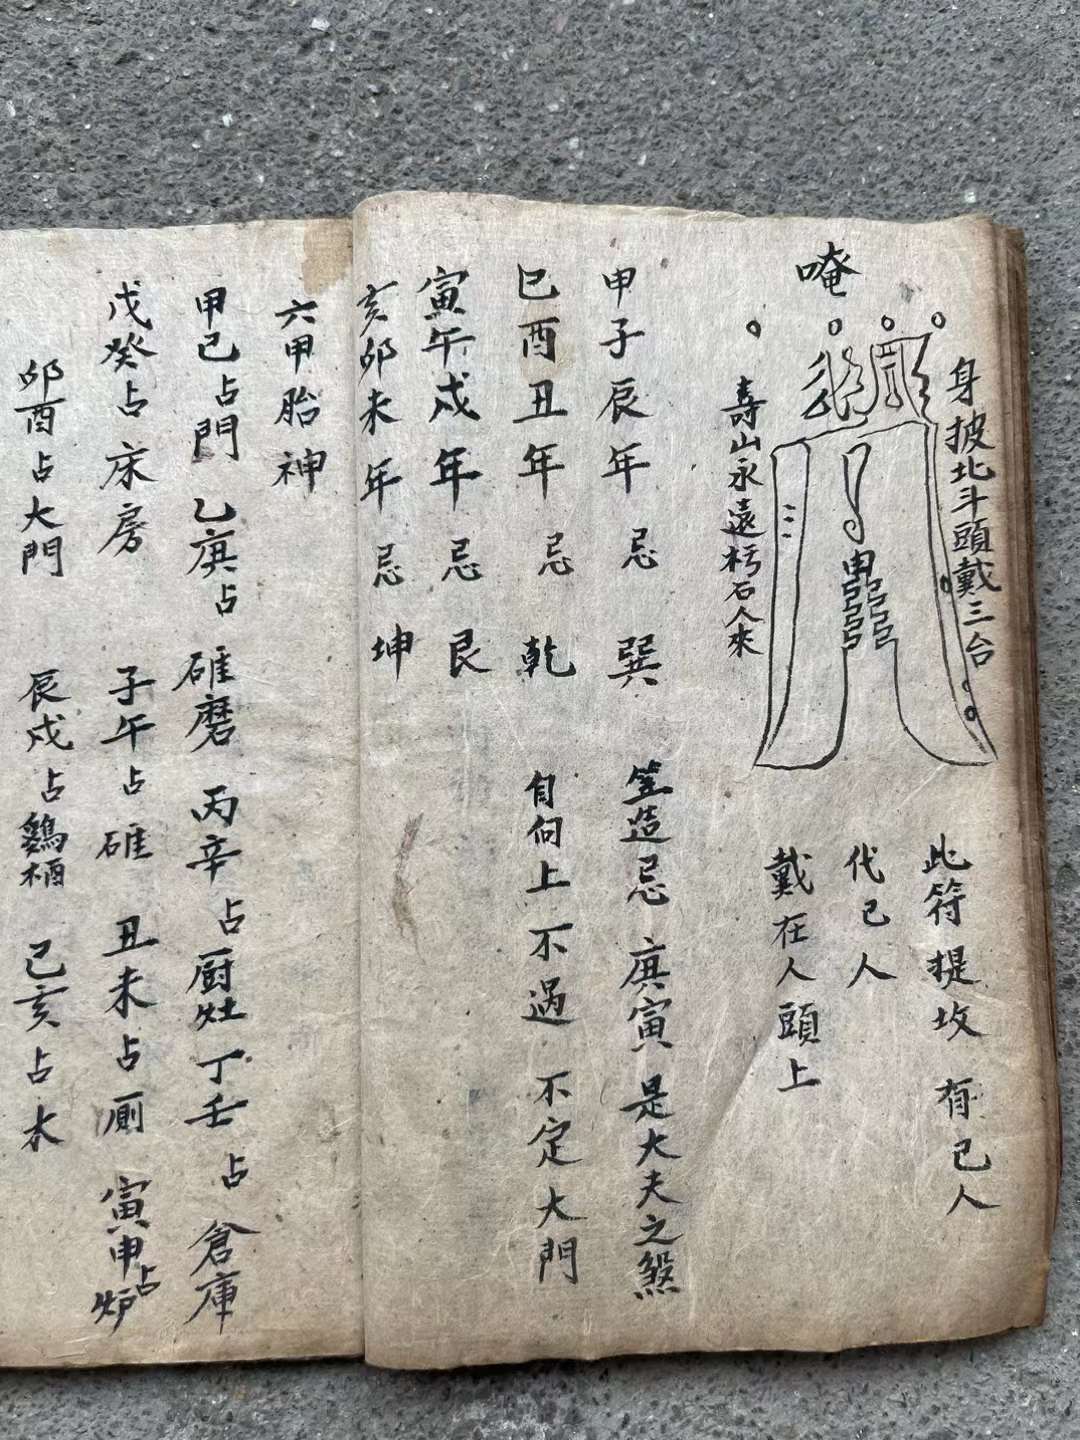 唵
身披北斗頭戴三台
壽山永遠朽石人來
此符提坟有已人
代已人
戴在人頭上
甲子辰年忌巽 笠造忌庚寅是大夫之煞
巳酉丑年忌乾 自向上不過不定大門
寅午戌年忌艮
亥卯未年忌坤
六甲胎神
甲己占門 乙庚占碓磨 丙辛占厨灶 丁壬占倉庫
戊癸占床房 子午占碓 丑未占厠 寅申占炉
卯酉占大門 辰戌占鷄栖 己亥占木